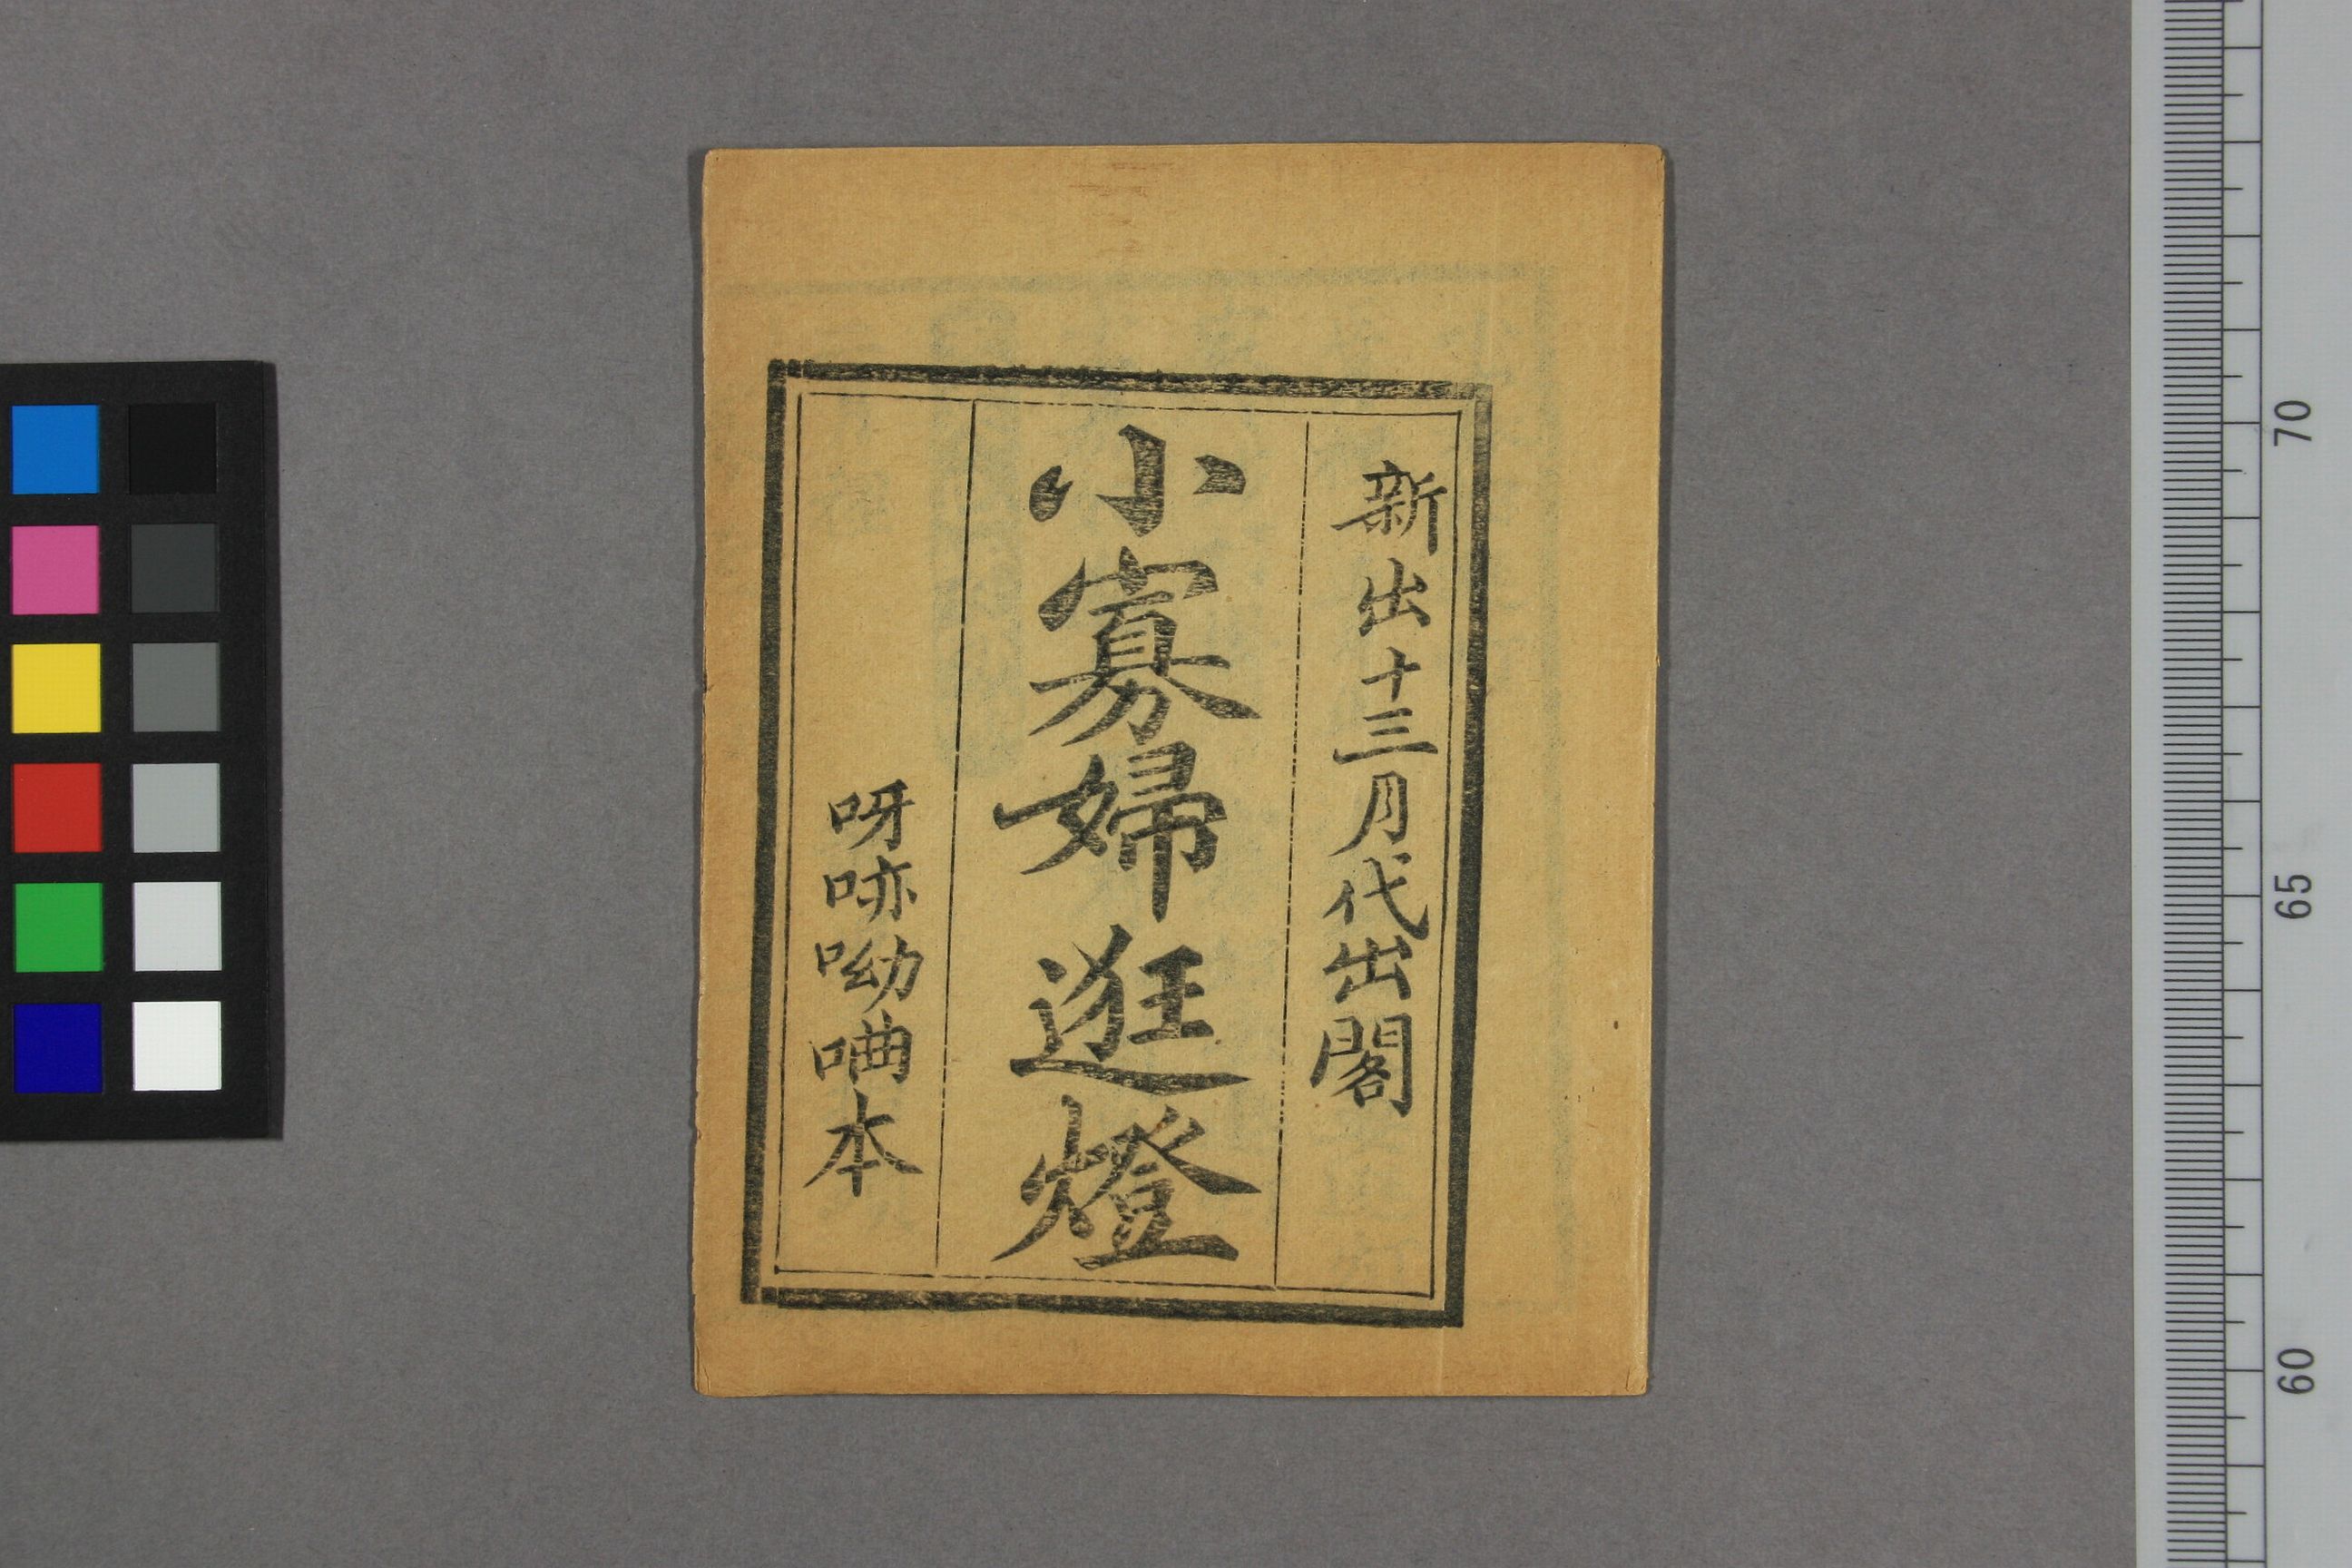 新出十三月代出閣
小寡婦逛燈
呀哧呦㖆本
70
65
60